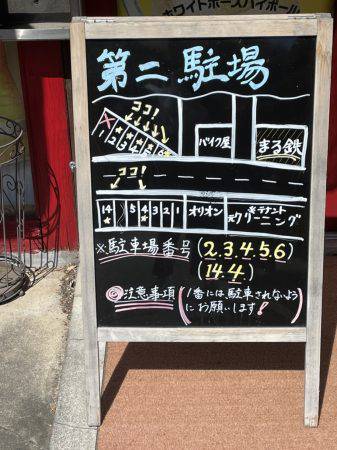 ホワイトホースハイボール
第二駐場
ココ!
1 2 3 4 5 6
バイク屋
まる鉄
ココ!
14 5 4 3 2 1
オリオン
元クリーニング
※テナント
※駐車場番号(2.3.4.5.6)
(14.4.)
注意事項(1番には駐車されないよう
にお願いします!